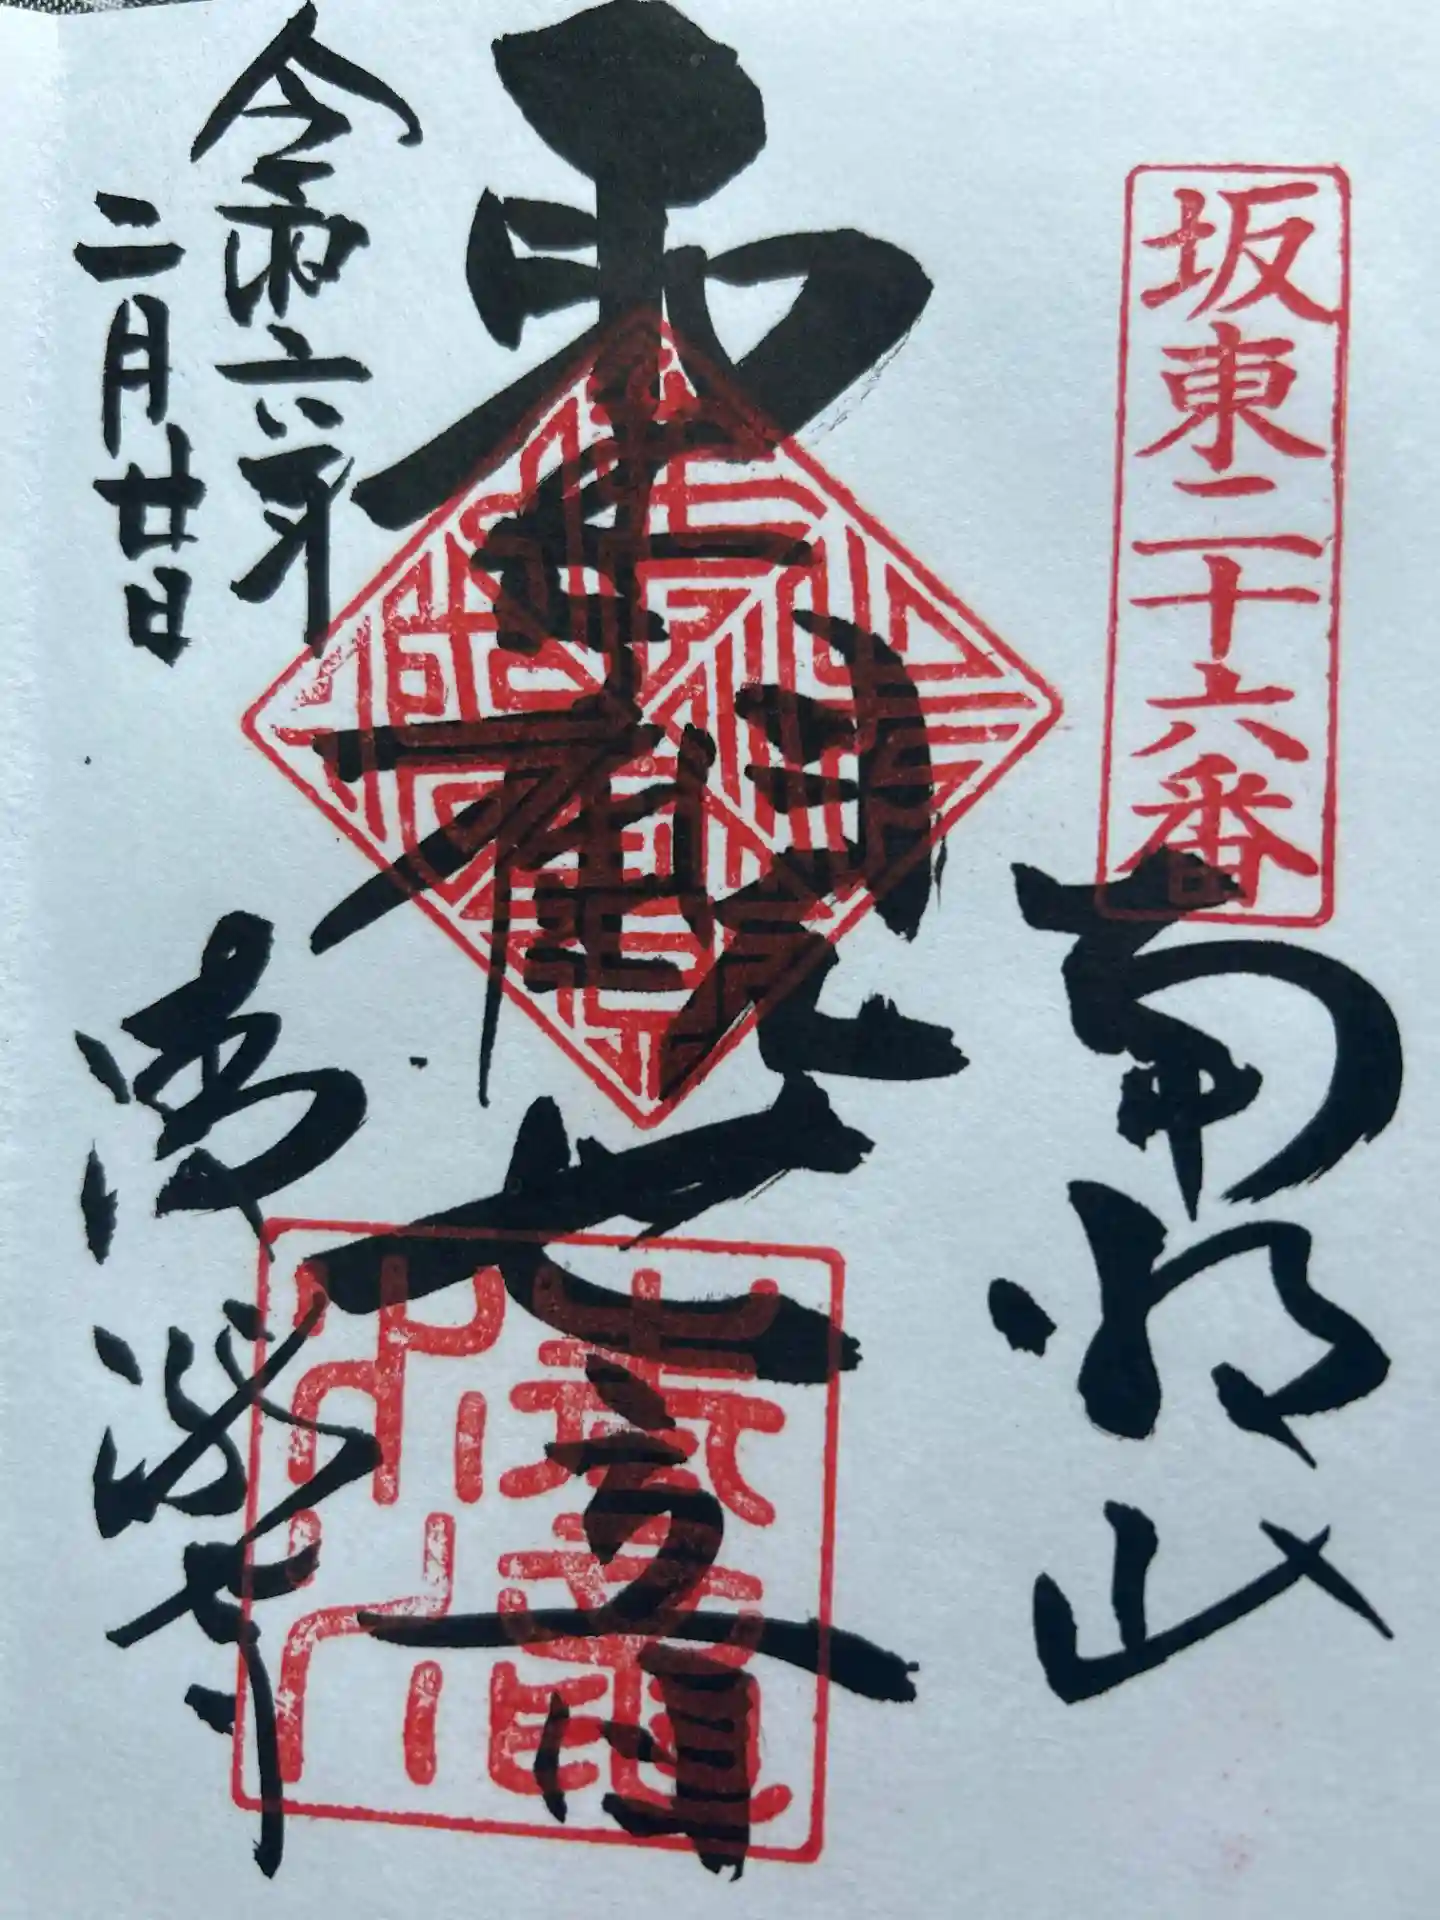 坂東二十六番
南明山
観世音
令和六年
二月廿日
清滝寺